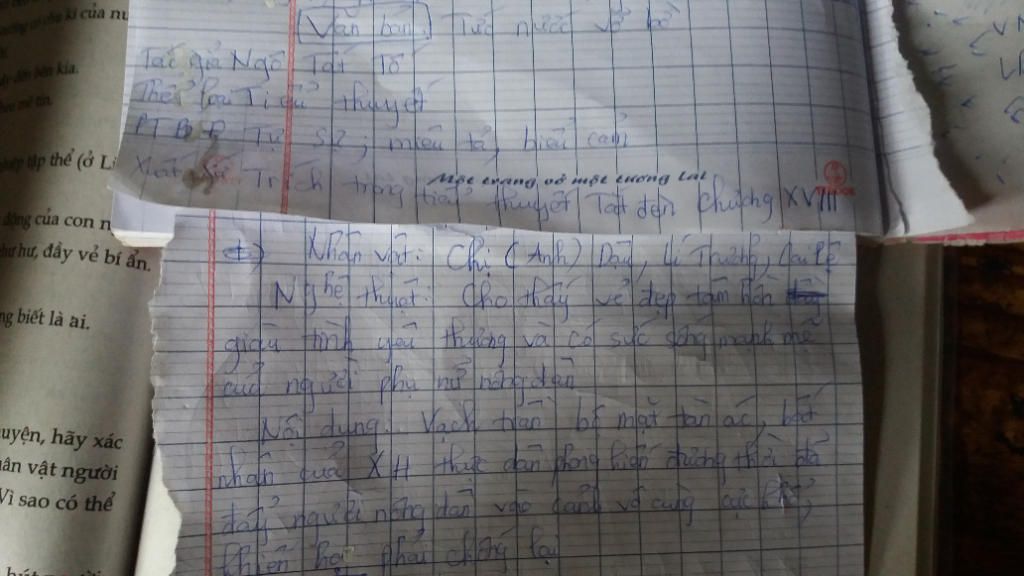 Văn bản: Tức nước vỡ bờ
Tác giả Ngô Tất Tố
Thể loại Tiểu thuyết
PTBĐ Tự sự, miêu tả, biểu cảm
Một trang vở một tương lai
Xuất xứ Trích trong tiểu thuyết Tắt đèn chương XVIII
Nhân vật: Chị (Anh) Dậu, Lí Trưởng, Cai lệ
Nghệ thuật: Cho thấy vẻ đẹp tâm hồn
giàu tình yêu thương và có sức sống mạnh mẽ
của người phụ nữ nông dân
Nội dung: Vạch trần bộ mặt tàn ác, bất
nhân của XH thực dân phong kiến đương thời đã
đẩy người nông dân vào cảnh vô cùng cực khổ,
khiến họ phải chống lại
của nu
bên kia.
tập thể (ở Li
động của con n
như hư, đầy vẻ bí ẩn.
biết là ai.
uyện, hãy xác
ân vật người
Vì sao có thể